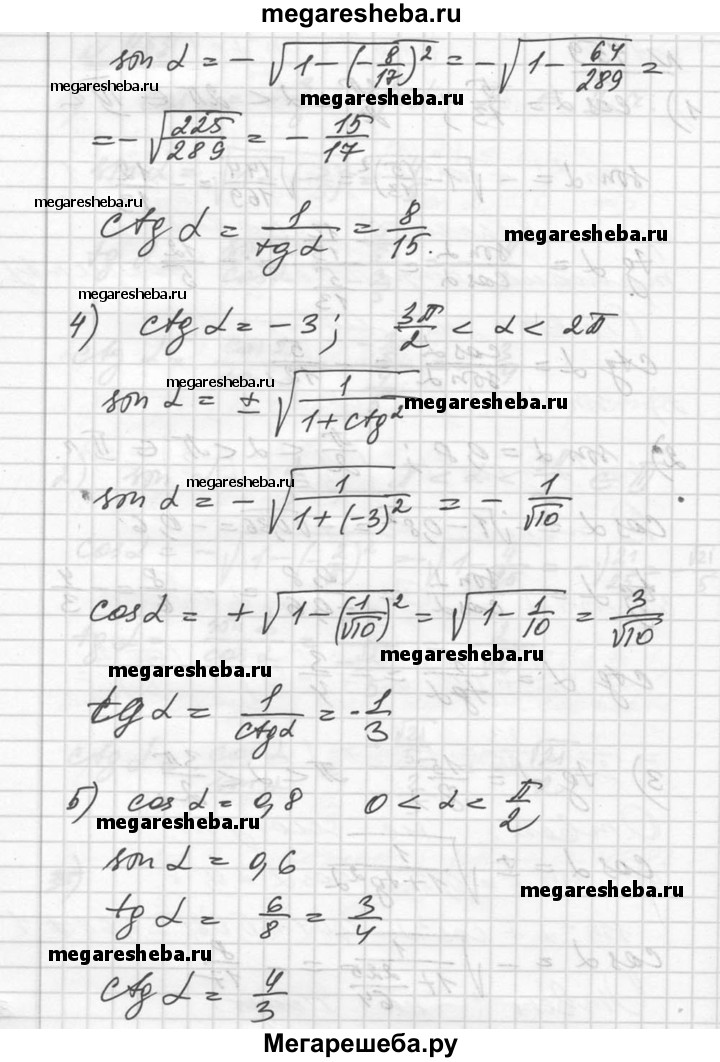 megaresheba.ru
sin α = - √(1 - (-8/17)²) = -√(1 - 64/289) =
megaresheba.ru
megaresheba.ru
= -√(225/289) = - 15/17
megaresheba.ru
ctg α = 1/tg α = 8/15.
megaresheba.ru
megaresheba.ru
4) ctg α = -3; 3π/2 < α < 2π
megaresheba.ru
sin α = ± √(1/(1 + ctg²
megaresheba.ru
megaresheba.ru
sin α = - √(1/(1 + (-3)²)) = - 1/√10
cos α = + √(1 - (1/√10)²) = √(1 - 1/10) = 3/√10
megaresheba.ru
megaresheba.ru
tg α = 1/ctg α = -1/3
5) cos α = 0,8 0 < α < π/2
megaresheba.ru
sin α = 0,6
megaresheba.ru
tg α = 6/8 = 3/4
megaresheba.ru
ctg α = 4/3
Мегарешеба.ру